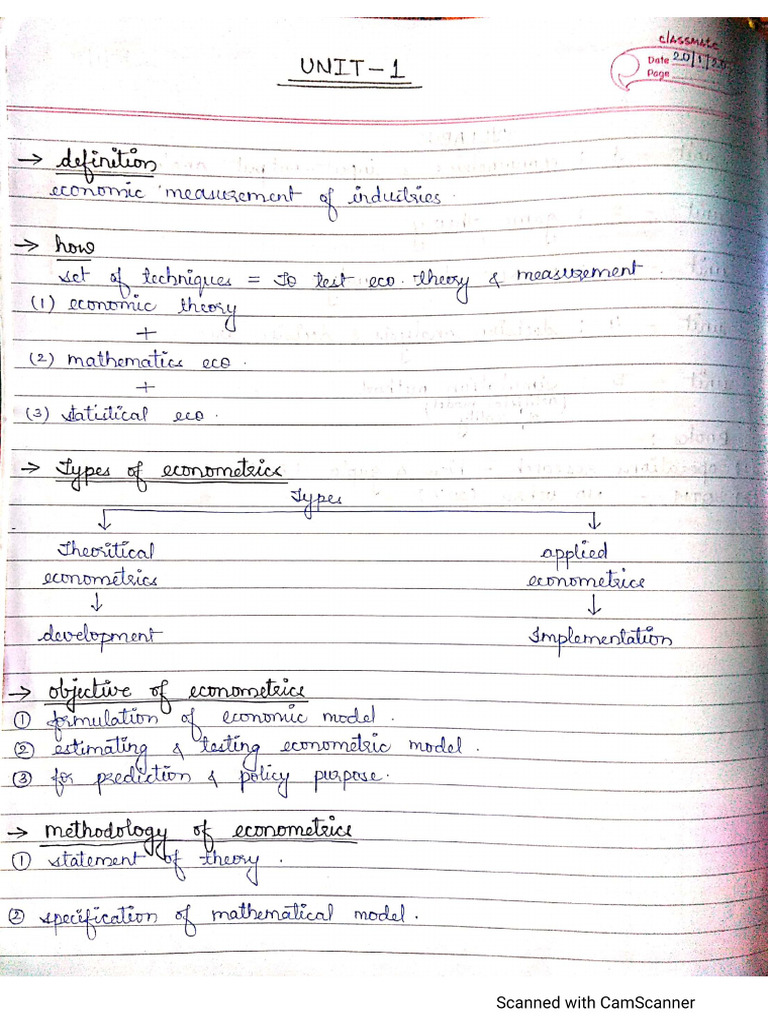 classmate
Date 20/1/20
Page
UNIT-1
→ definition
economic measurement of industries.
→ how
set of techniques = To test eco. theory & measurement.
(1) economic theory
+
(2) mathematics eco.
+
(3) statistical eco.
→ Types of econometrics
Types
Theoritical applied
econometrics econometrics
↓ ↓
development Implementation
→ objective of econometrics
① formulation of economic model.
② estimating & testing econometric model.
③ for prediction & policy purpose.
→ methodology of econometrics
① statement of theory.
② specification of mathematical model.
Scanned with CamScanner